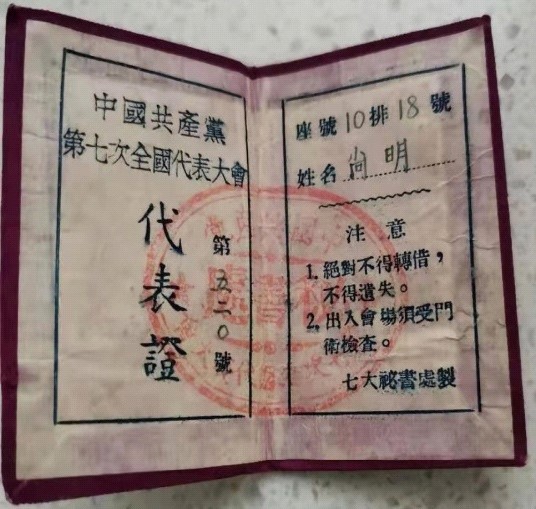 中國共產黨
第七次全國代表大會
代表證
第五二〇號
座號10排18號
姓名 尚明
注意
1. 絕對不得轉借，
不得遺失。
2. 出入會場須受門
衛檢查。
七大祕書處製